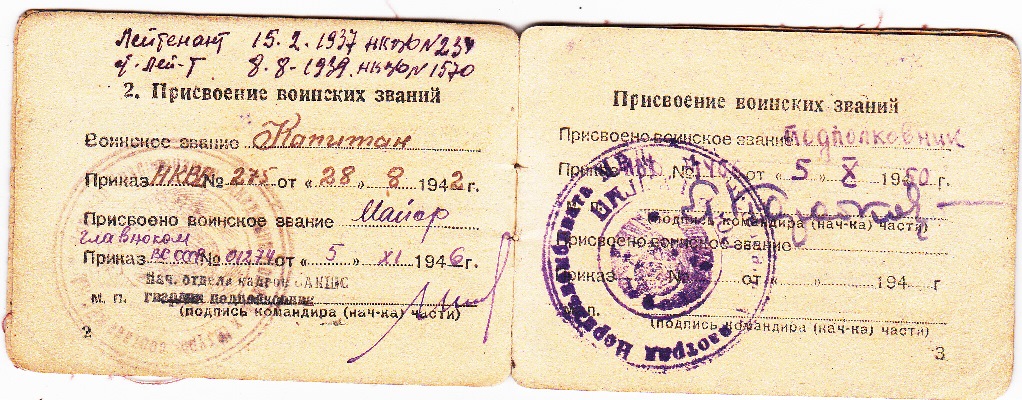 Лейтенант 15.2.1937 НКО № 234
ст. Лей-т 8.8-1939. НКО № 1570
2. Присвоение воинских званий
Воинское звание Капитан
Приказ № 275 от « 28 » 8 1942 г.
Присвоено воинское звание Майор
главноком
Приказ ВС СССР № 01274 от « 5 » XI 1946 г.
Нач. отдела кадров
м. п. гвардии подполковник
(подпись командира (нач-ка) части)
2
Присвоение воинских званий
Присвоено воинское звание Подполковник
Приказ № от « 5 » X 1950 г.
(подпись командира (нач-ка) части)
Присвоено воинское звание
Приказ № от « » 194 г
м. п.
(подпись командира (нач-ка) части)
3